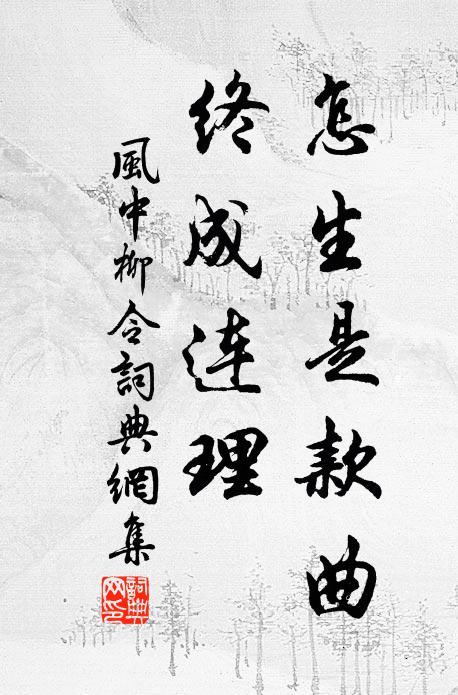 怎生是款曲
终成连理
風中柳令詞典網集
詞典